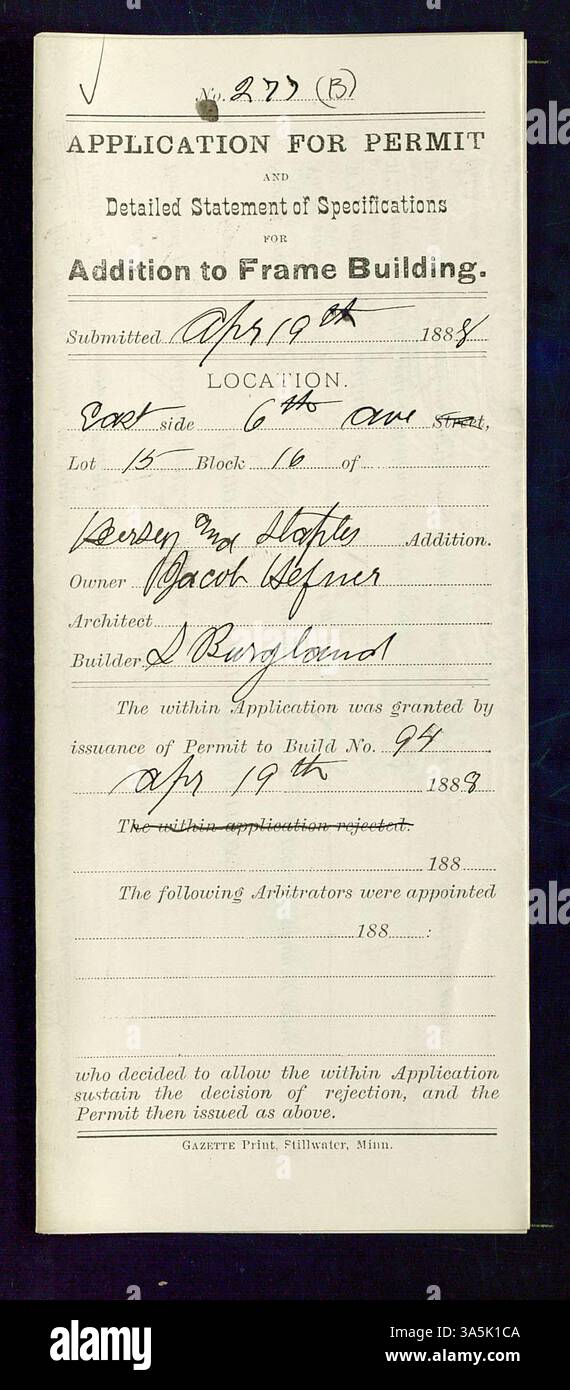 No. 277 (B)
APPLICATION FOR PERMIT
AND
Detailed Statement of Specifications
FOR
Addition to Frame Building.
Submitted Apr 19th 1888
LOCATION.
East side 6th ave Street,
Lot 15 Block 16 of
Hersey and Staples Addition.
Owner Jacob Hefner
Architect
Builder. S Burgland
The within Application was granted by
issuance of Permit to Build No. 94
Apr 19th 1888
The within application rejected.
188
The following Arbitrators were appointed
188 :
who decided to allow the within Application
sustain the decision of rejection, and the
Permit then issued as above.
GAZETTE Print, Stillwater, Minn.
alamy
Image ID: 3A5K1CA
www.alamy.com